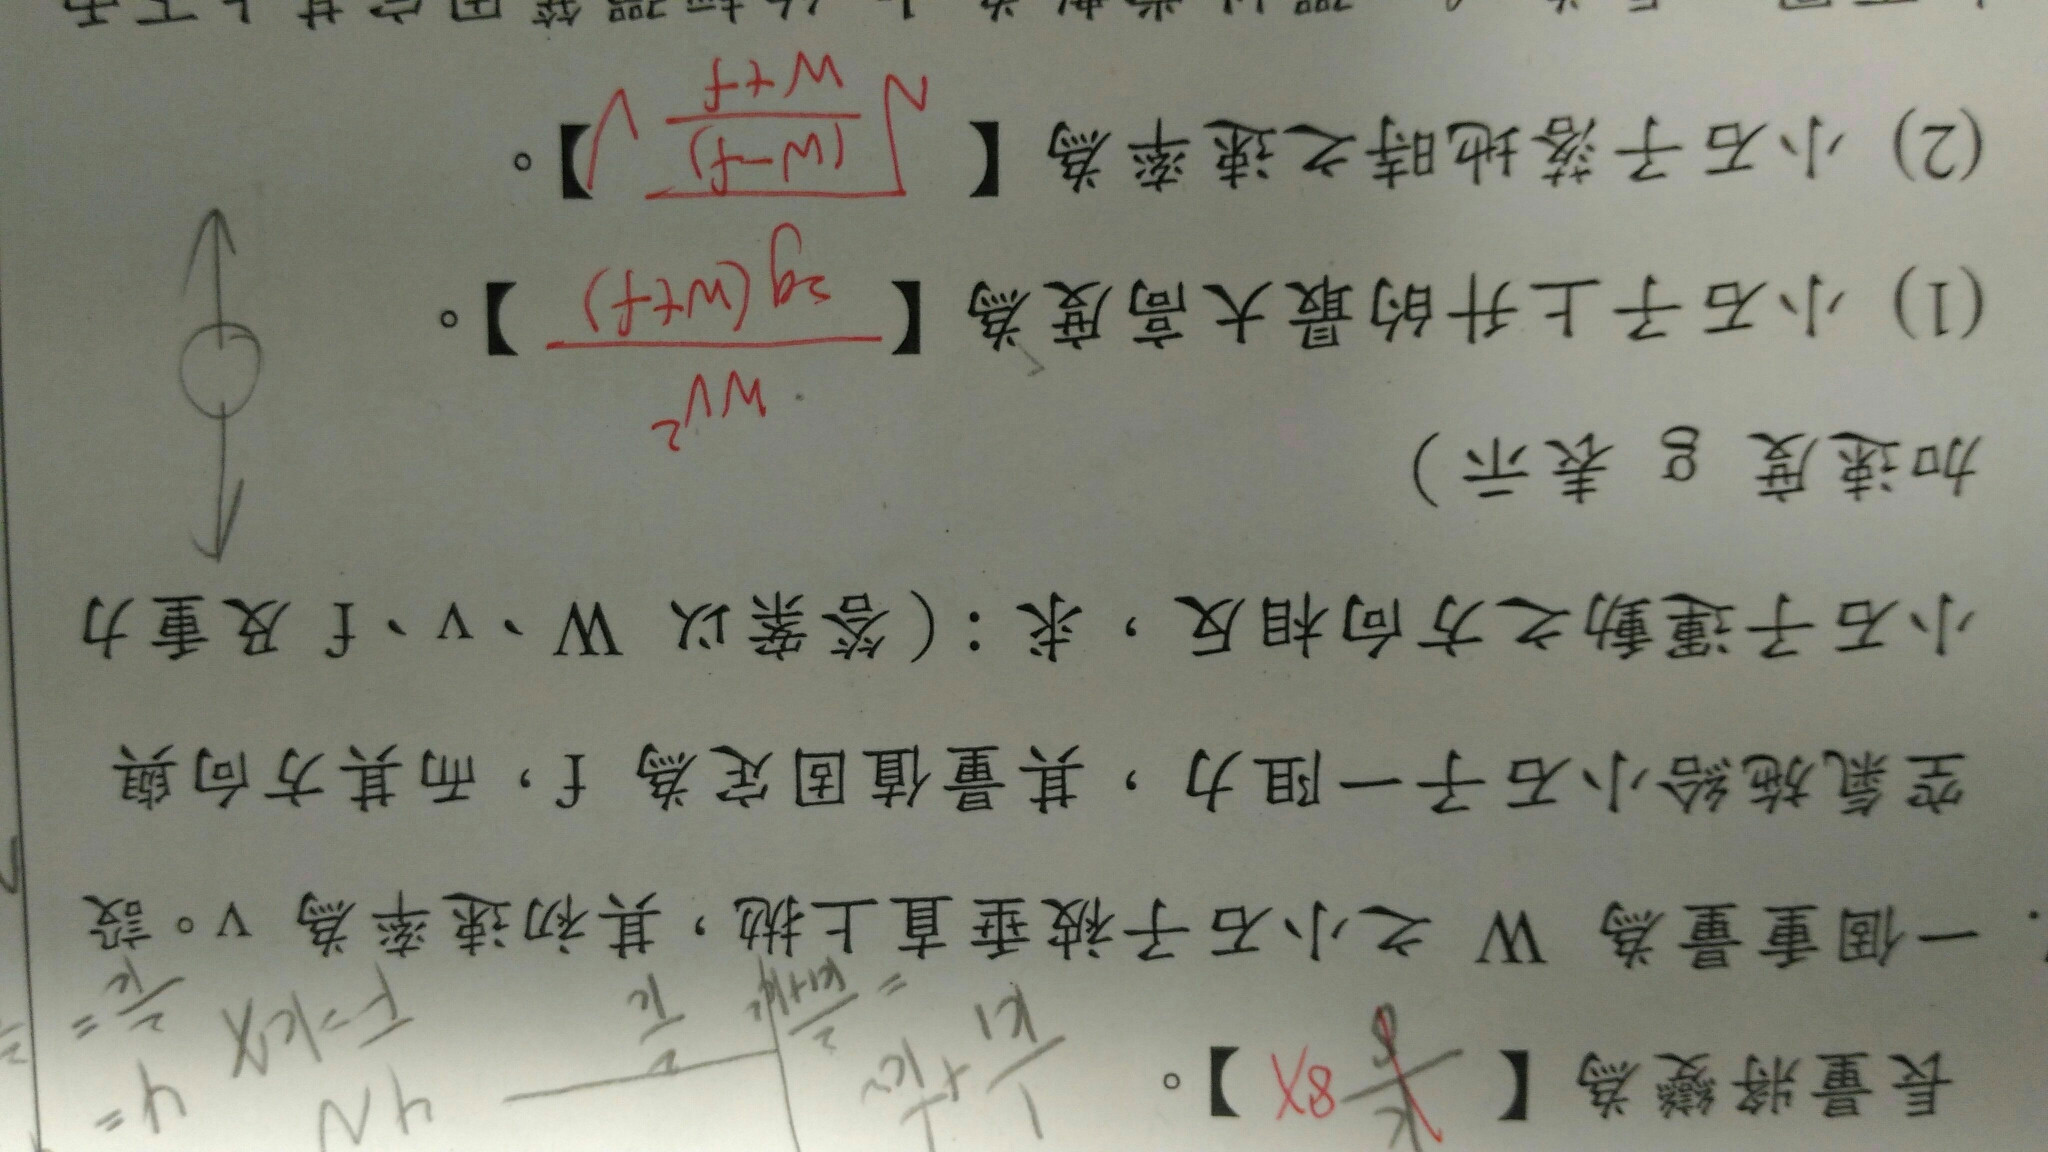 長量將變為【 8X 】。
4N
F=kX
一個重量為 W 之小石子被垂直上拋，其初速率為 v。設
空氣施給小石子一阻力，其量值固定為 f，而其方向與
小石子運動之方向相反，求：(答案以 W、v、f 及重力
加速度 g 表示)
(1) 小石子上升的最大高度為【 WV² / 2g(W+f) 】。
(2) 小石子落地時之速率為【 √((W-f)/(W+f)) V 】。